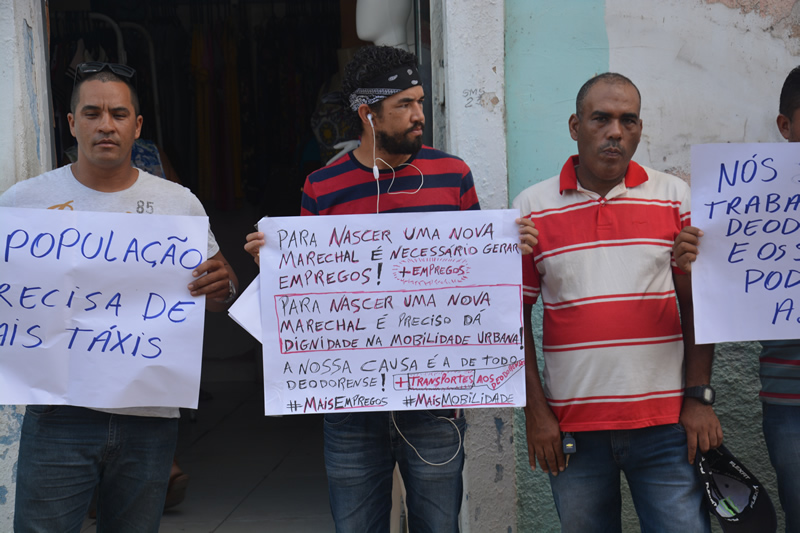 POPULAÇÃO
RECISA DE
AIS TÁXIS
PARA NASCER UMA NOVA
MARECHAL É NECESSÁRIO GERAR
EMPREGOS! +EMPREGOS
PARA NASCER UMA NOVA
MARECHAL É PRECISO DÁ
DIGNIDADE NA MOBILIDADE URBANA!
A NOSSA CAUSA É A DE TODO
DEODORENSE! +TRANSPORTES AOS
#MAISEMPREGOS #MAISMOBILIDADE
NÓS
TRABA
DEODO
E OS
POD
A
85